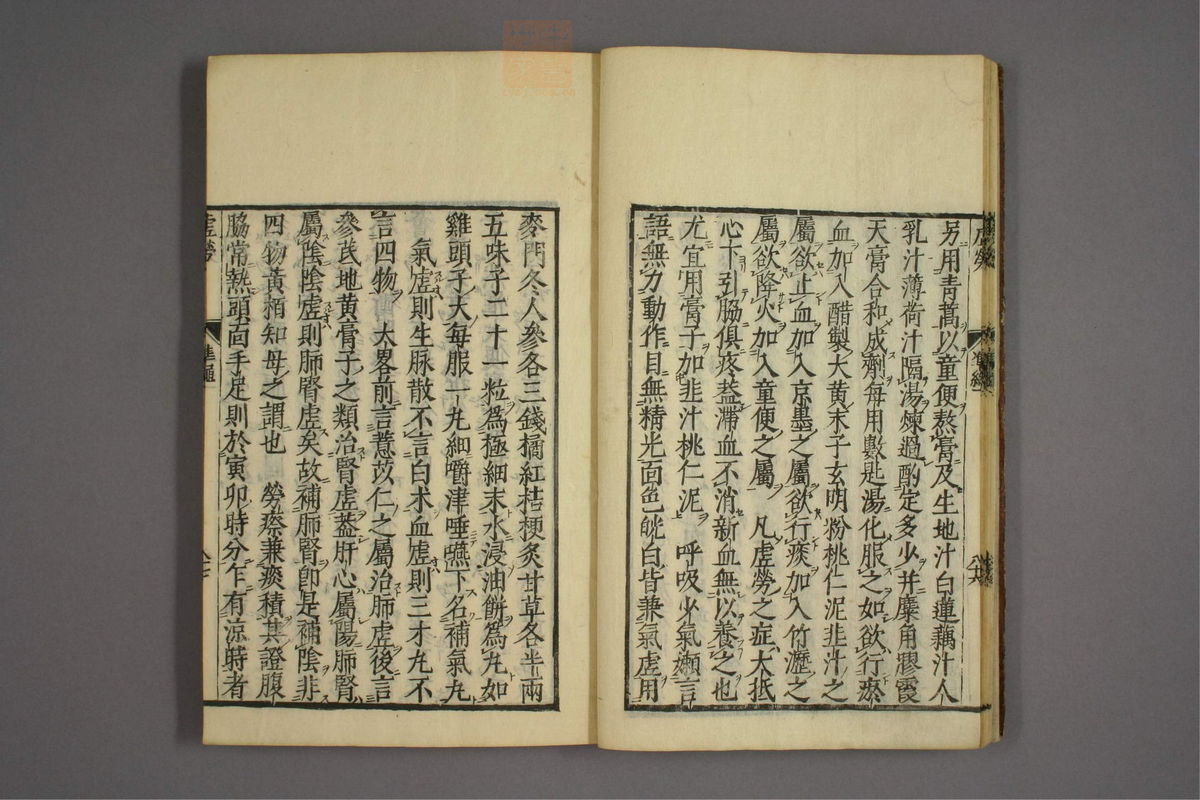 另用青蒿以童便熬膏及生地汁白蓮藕汁人
乳汁薄荷汁隔湯煉過酌定多少并麋角膠霞
天膏合和成劑每用數匙湯化服之如欲行瘀
血加入醋製大黃末子玄明粉桃仁泥韭汁之
屬欲止血加入京墨之屬欲行痰加入竹瀝之
屬欲降火加入童便之屬 凡虛勞之症大抵
心下引脇俱疼蓋滯血不消新血無以養之也
尤宜用膏子加韭汁桃仁泥 呼吸少氣懶言
語無力動作目無精光面色㿠白皆兼氣虛用
麥門冬人參各三錢橘紅桔梗炙甘草各半兩
五味子二十一粒爲極細末水浸油餅爲丸如
雞頭子大每服一丸細嚼津唾嚥下名補氣丸
氣虛則生脉散不言白朮血虛則三才丸不
言四物 大畧前言薏苡仁之屬治肺虛後言
參芪地黃膏子之類治腎虛蓋肝心屬陽肺腎
屬陰陰虛則肺腎虛矣故補肺腎卽是補陰非
四物黃栢知母之謂也 勞瘵兼痰積其證腹
脇常熱頭面手足則於寅卯時分乍有涼時者
虛勞
準繩